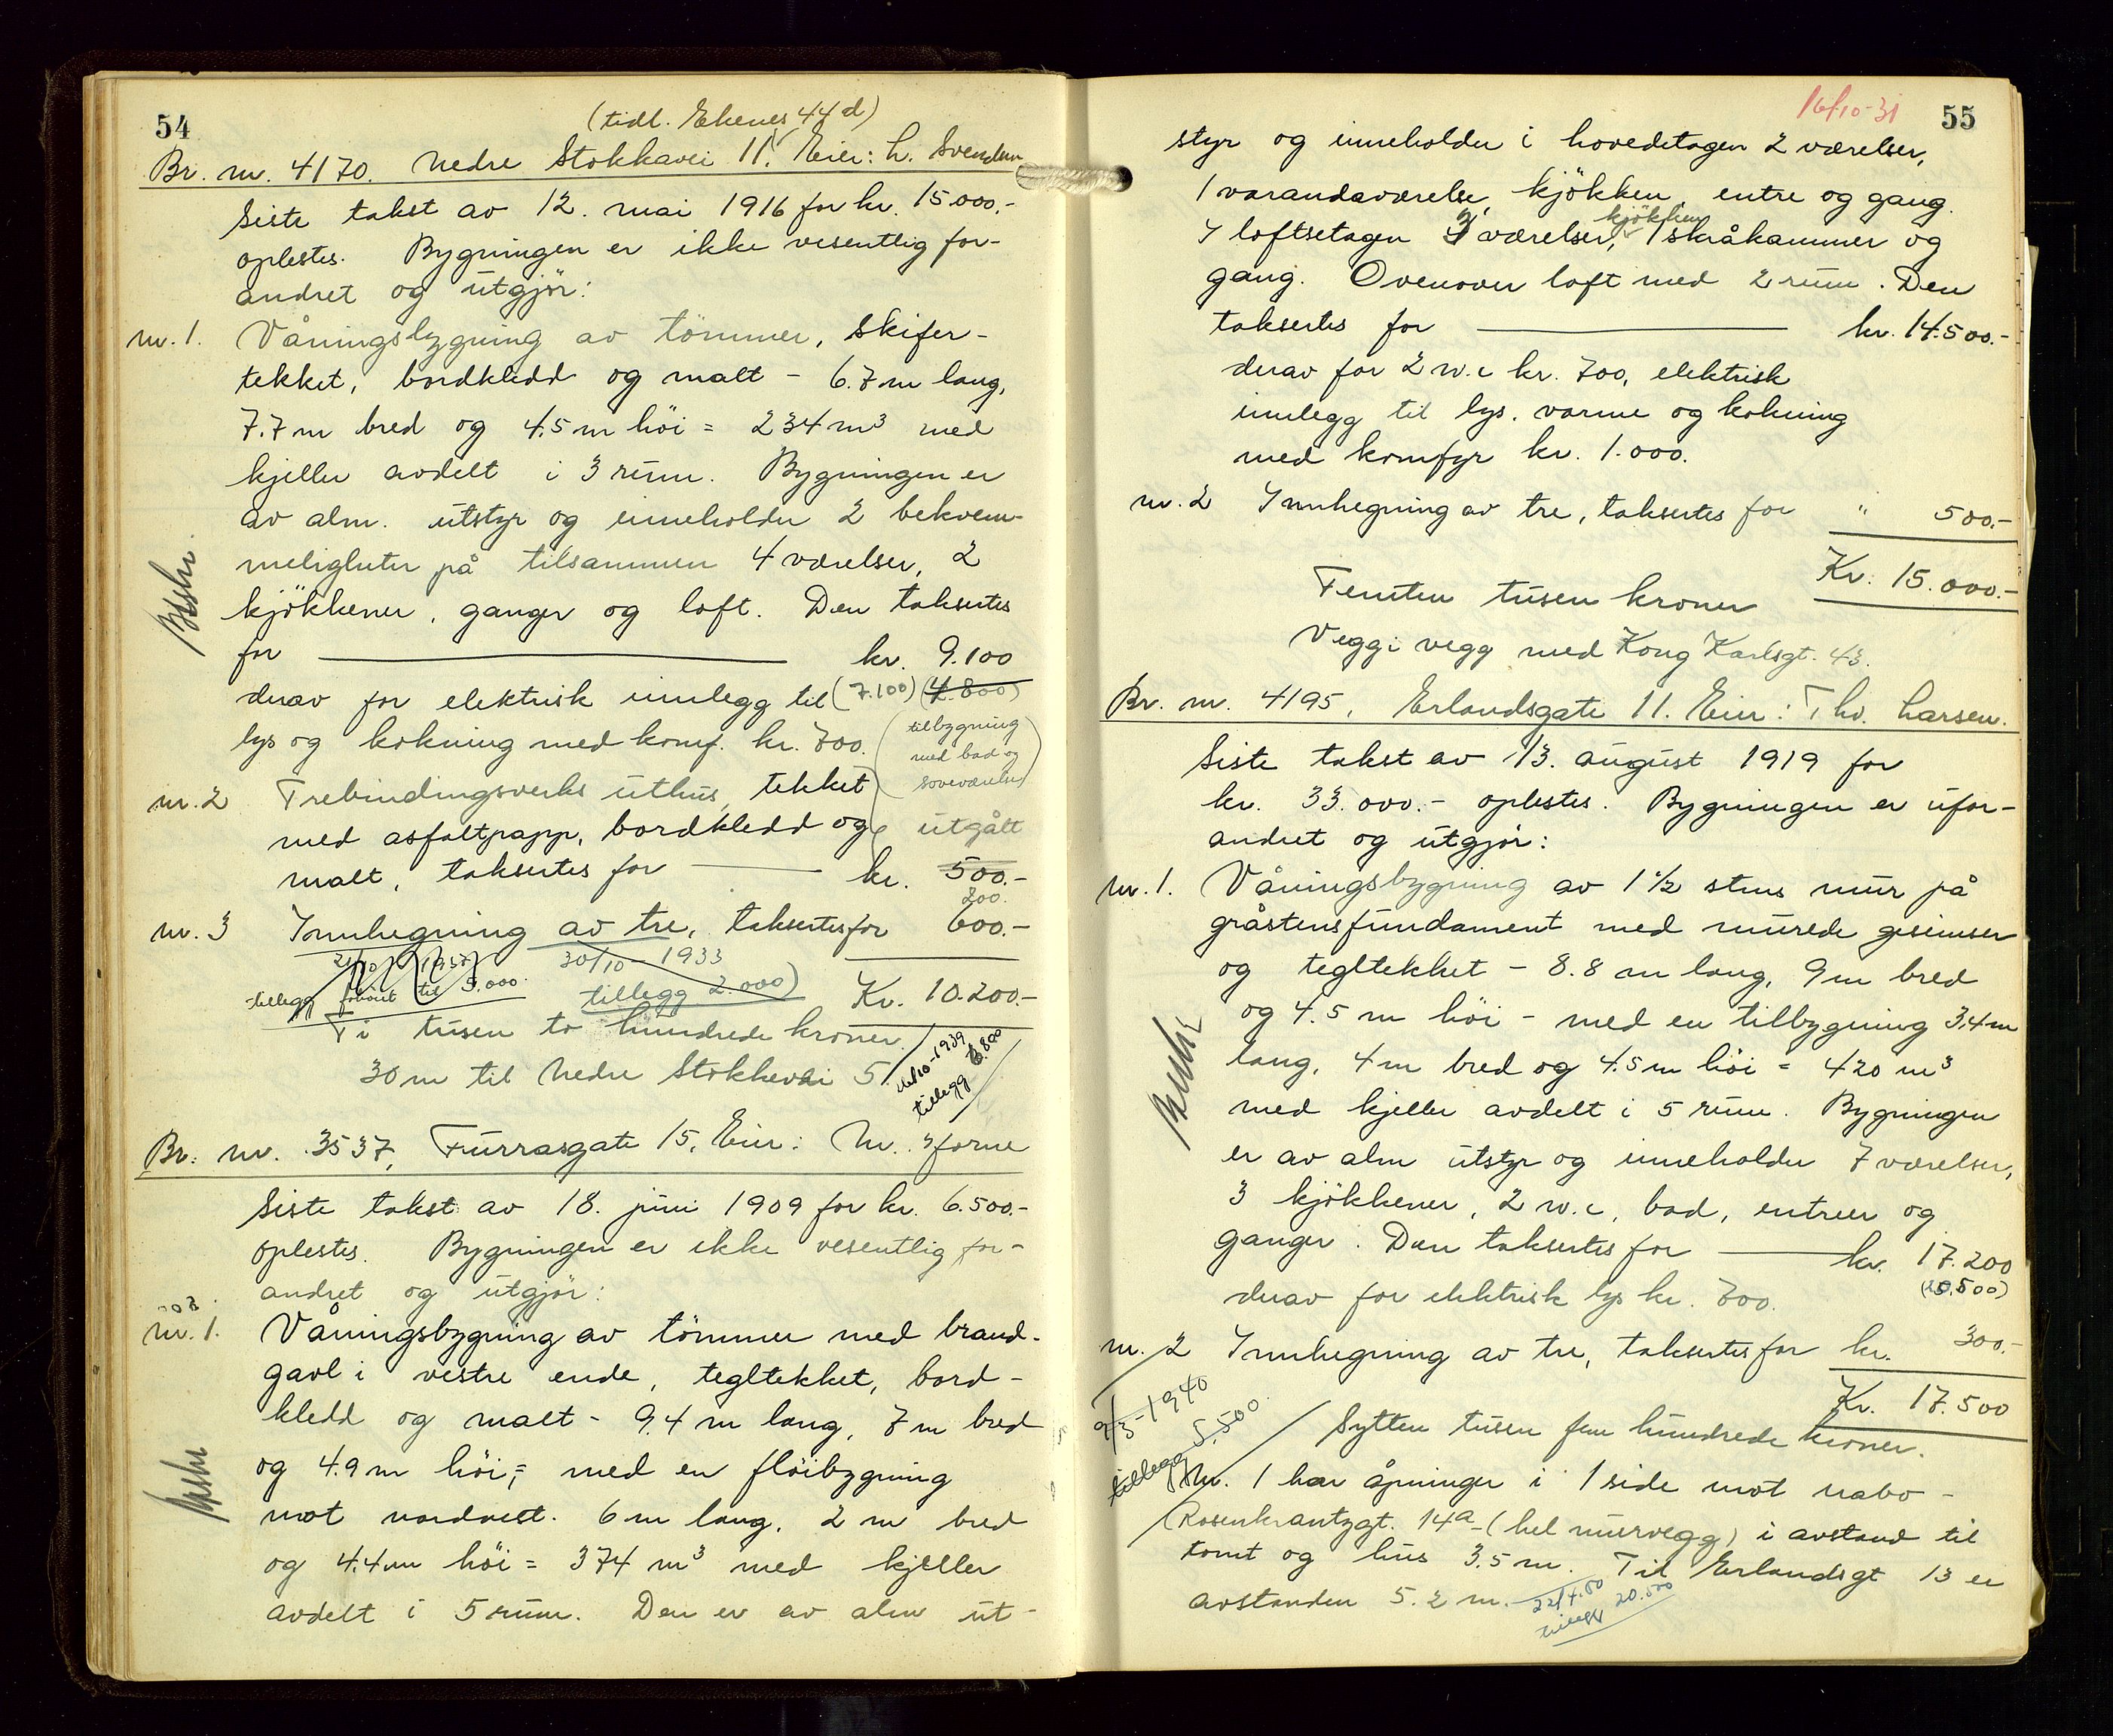 54
(tidl. Ekenes 44 d)
Br. nr. 4170. Nedre Stokkavei 11. Eier: L. Svendsen
Siste takst av 12. mai 1916 for kr. 15.000,-
oplestes. Bygningen er ikke vesentlig for-
andret og utgjör:
nr. 1. Våningsbygning av tömmer, skifer-
tekket, bordkledd og malt - 6.7 m lang,
7.7 m bred og 4.5 m höi = 234 m³ med
kjeller avdelt i 3 rum. Bygningen er
av alm. utstyr og inneholder 2 bekvem-
meligheter på tilsammen 4 værelser, 2
kjökkener, ganger og loft. Den takseres
for kr. 9.100
derav for elektrisk innlegg til (7.100) (4.800)
lys og kokning med komf. kr. 700. (tilbygning
med bad og
soveværelse)
nr. 2 Trebindingsverks uthus, tekket
med asfaltpapp, bordkledd og utgått
malt, taksertes for kr. 500.-
200.
nr. 3 Innhegning av tre, taksertes for 600.-
21/10 1937 30/10 - 1933
tillegg forhöiet til 5.000. tillegg 2.000)
Kr. 10.200.-
Ti tusen to hundrede kroner.
30 m til Nedre Stokkevei 5
16/10-1939
tillegg 6.800
Br. nr. 3537, Furrasgate 15, Eier: M.
Siste takst av 18. juni 1909 for kr. 6.500.-
oplestes. Bygningen er ikke vesentlig for-
andret og utgjör:
nr. 1. Våningsbygning av tömmer med brand-
gavl i vestre ende, tegltekket, bord-
kledd og malt - 9.4 m lang, 7 m bred
og 4.9 m höi, = med en flöibygning
mot nordvest. 6 m lang, 2 m bred
og 4.4 m höi = 374 m³ med kjeller
avdelt i 5 rum. Den er av alm ut-
16/10-31
55
styr og inneholder i hovedetagen 2 værelser,
1 varandaværelse, kjökken, entre og gang.
I loftsetagen 3 værelser, kjökken, 1 skråkammer og
gang. Ovenover loft med 2 rum. Den
taksertes for kr. 14.500.-
derav for 2 w.c kr. 700, elektrisk
innlegg til lys. varme og kokning
med komfyr kr. 1.000.
nr. 2 Innhegning av tre, taksertes for " 500.-
Kr. 15.000.-
Femten tusen kroner
Vegg i vegg med Kong Karlsgt. 43.
Br. nr. 4195, Erlandsgate 11. Eier: Th. Larsen.
Siste takst av 13. august 1919 for
kr. 33.000.- oplestes. Bygningen er ufor-
andret og utgjör:
nr. 1. Våningsbygning av 1 1/2 stens mur på
gråstensfundament med murede gesimser
og tegltekket - 8.8 m lang, 9 m bred
og 4.5 m höi - med en tilbygning 3,4 m
lang, 4 m bred og 4.5 m höi = 420 m³
med kjeller avdelt i 5 rum. Bygningen
er av alm utstyr og inneholder 7 værelser,
3 kjökkener, 2 w.c, bad, entreer og
ganger. Den taksertes for kr. 17.200
derav for elektrisk lys kr. 700.
nr. 2 Innhegning av tre, taksertes for kr. 300.-
Kr. 17.500
9/3-1940
tillegg 5.500
Sytten tusen fem hundrede kroner.
Nr. 1 har åpninger i 1 side mot nabo -
Rosenkrantzgt. 14a - (hel murvegg) i avstand til
tomt og hus 3.5 m. Til Erlandsgt 13 er
avstanden 5.2 m. 22/4.50
tillegg 20.500